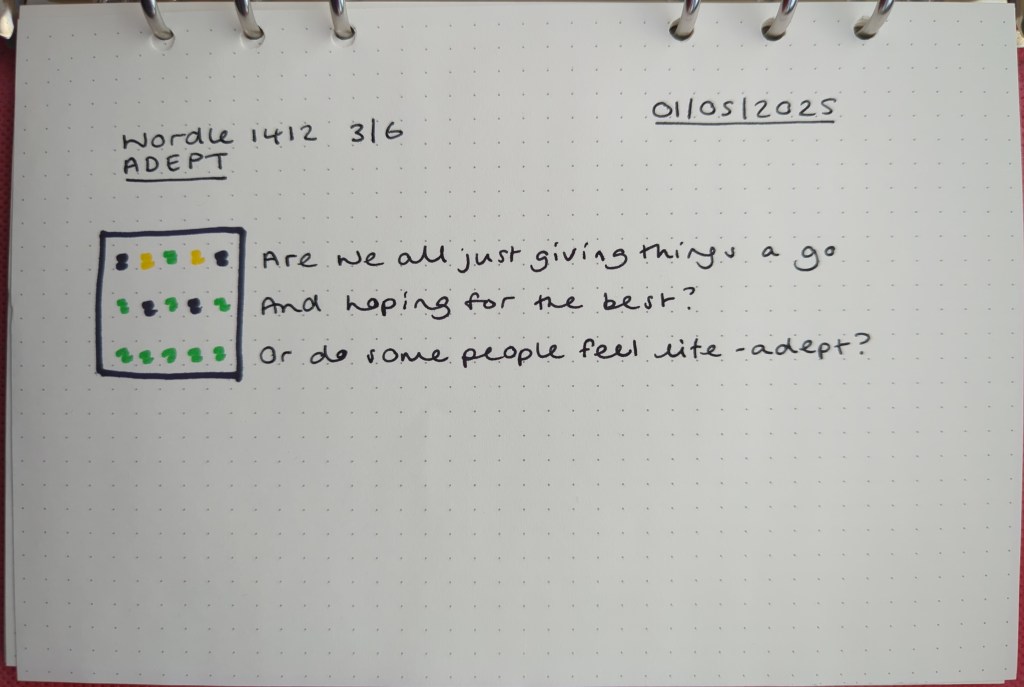 01/05/2025
Wordle 1412 3/6
ADEPT
Are we all just giving things a go
And hoping for the best?
Or do some people feel life-adept?